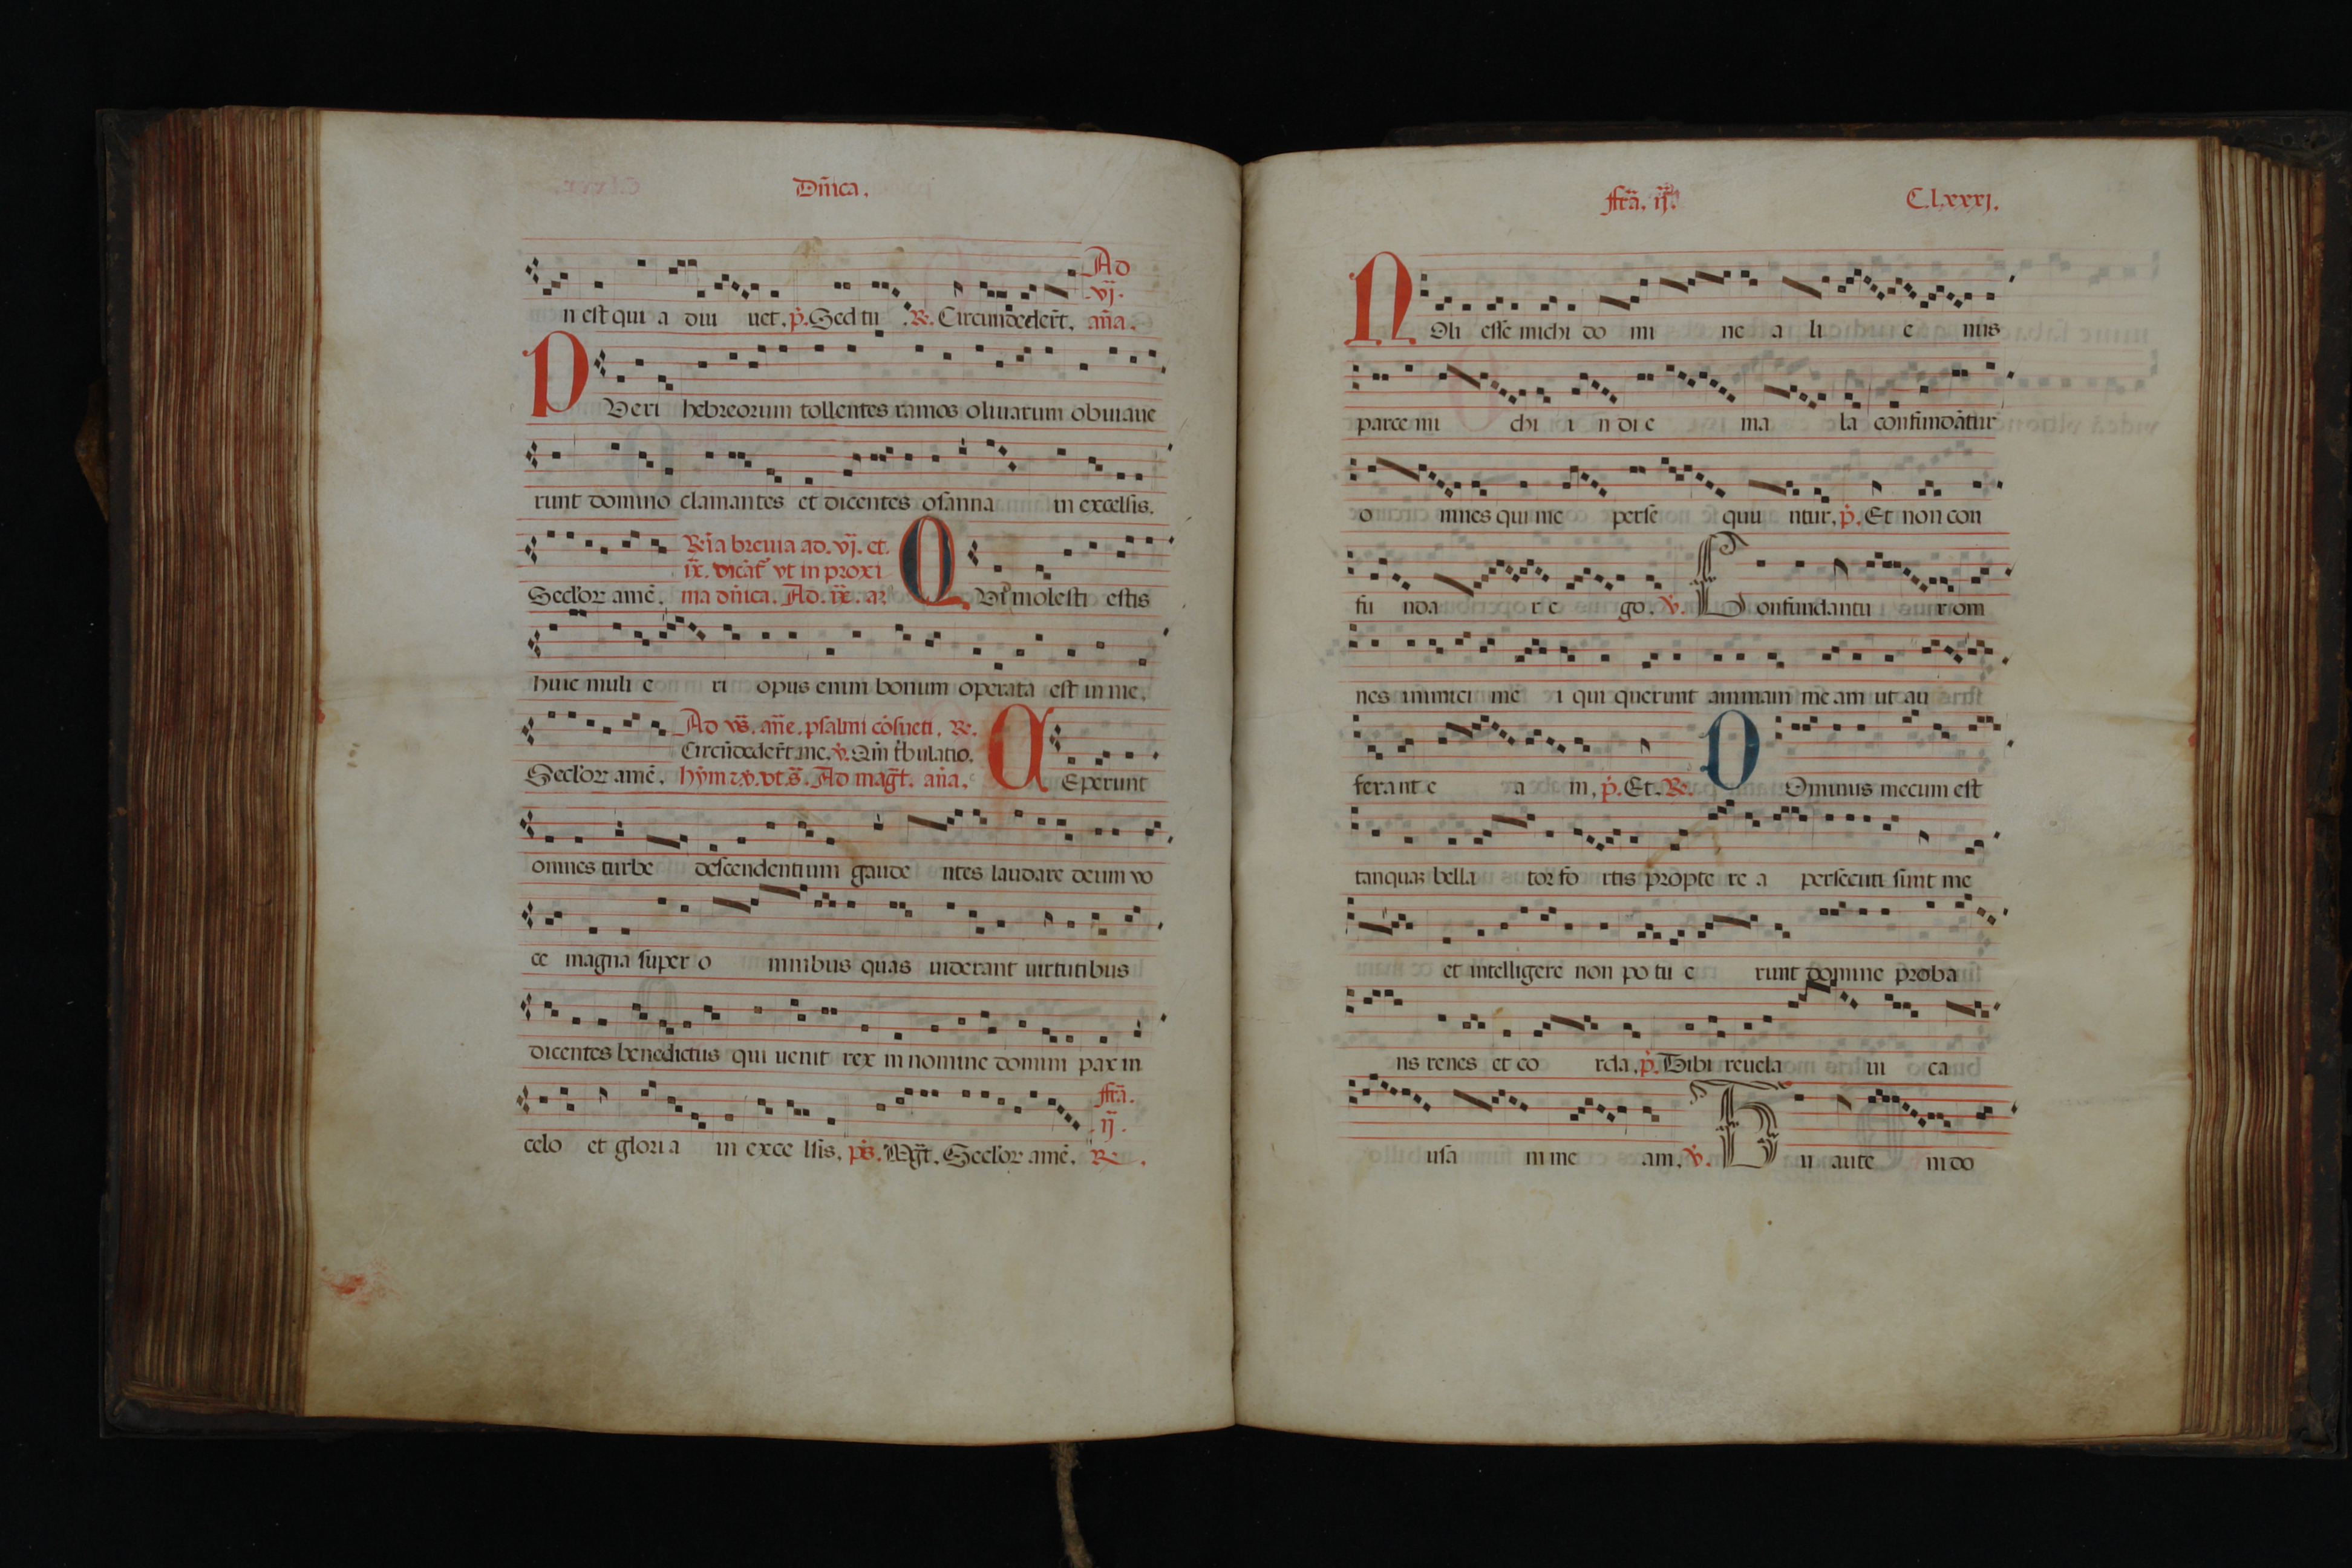 Dñica.
Ad
.vj.
n est qui a diu uet, p̃. Sed tu . R. Circundedert̃, aña.
PVeri hebreorum tollentes ramos oliuarum obuiaue
runt domino clamantes et dicentes osanna in excelsis.
Rĩa breuia ad. vj. et.
ix. dicãt᷑ vt in proxi
Seclor amẽ, ma dñica. Ad. ix. añ QVi molesti estis
huic muli e ri opus enim bonum operata est in me,
Ad vs̃. añe, psalmi cõsueti, R.
Circũdedert̃ me, v. Qm̃ t̃bulatio.
Seclor amẽ, hym̃ z v. vt s̃. Ad mag̃t. aña, CEperunt
omnes turbe descendentium gaude ntes laudare deum vo
ce magna super o mnibus quas uiderant uirtutibus
dicentes benedictus qui uenit rex in nomine domini pax in
fr̃a.
ij.
celo et glori a in exce lsis, ps̃. Mg̃t. Seclor amẽ, R.
fr̃a. ij.
C.lxxxj.
NOli esse michi do mi ne a li e nus
parce mi chi i n di e ma la confundãtur
o mnes qui me perse quu ntur, p̃. Et non con
fu nda r e go. v. Confundantu r om
nes inimici me i qui querunt animam me am ut au
ferant e a m, p̃. Et. R. DOminus mecum est
tanquaʒ bella tor fo rtis propte re a persecuti sunt me
et intelligere non po tu e runt domine proba
ns renes et co rda, p̃. Tibi reuela ui ca
usa m me am, v. Tu aute m do